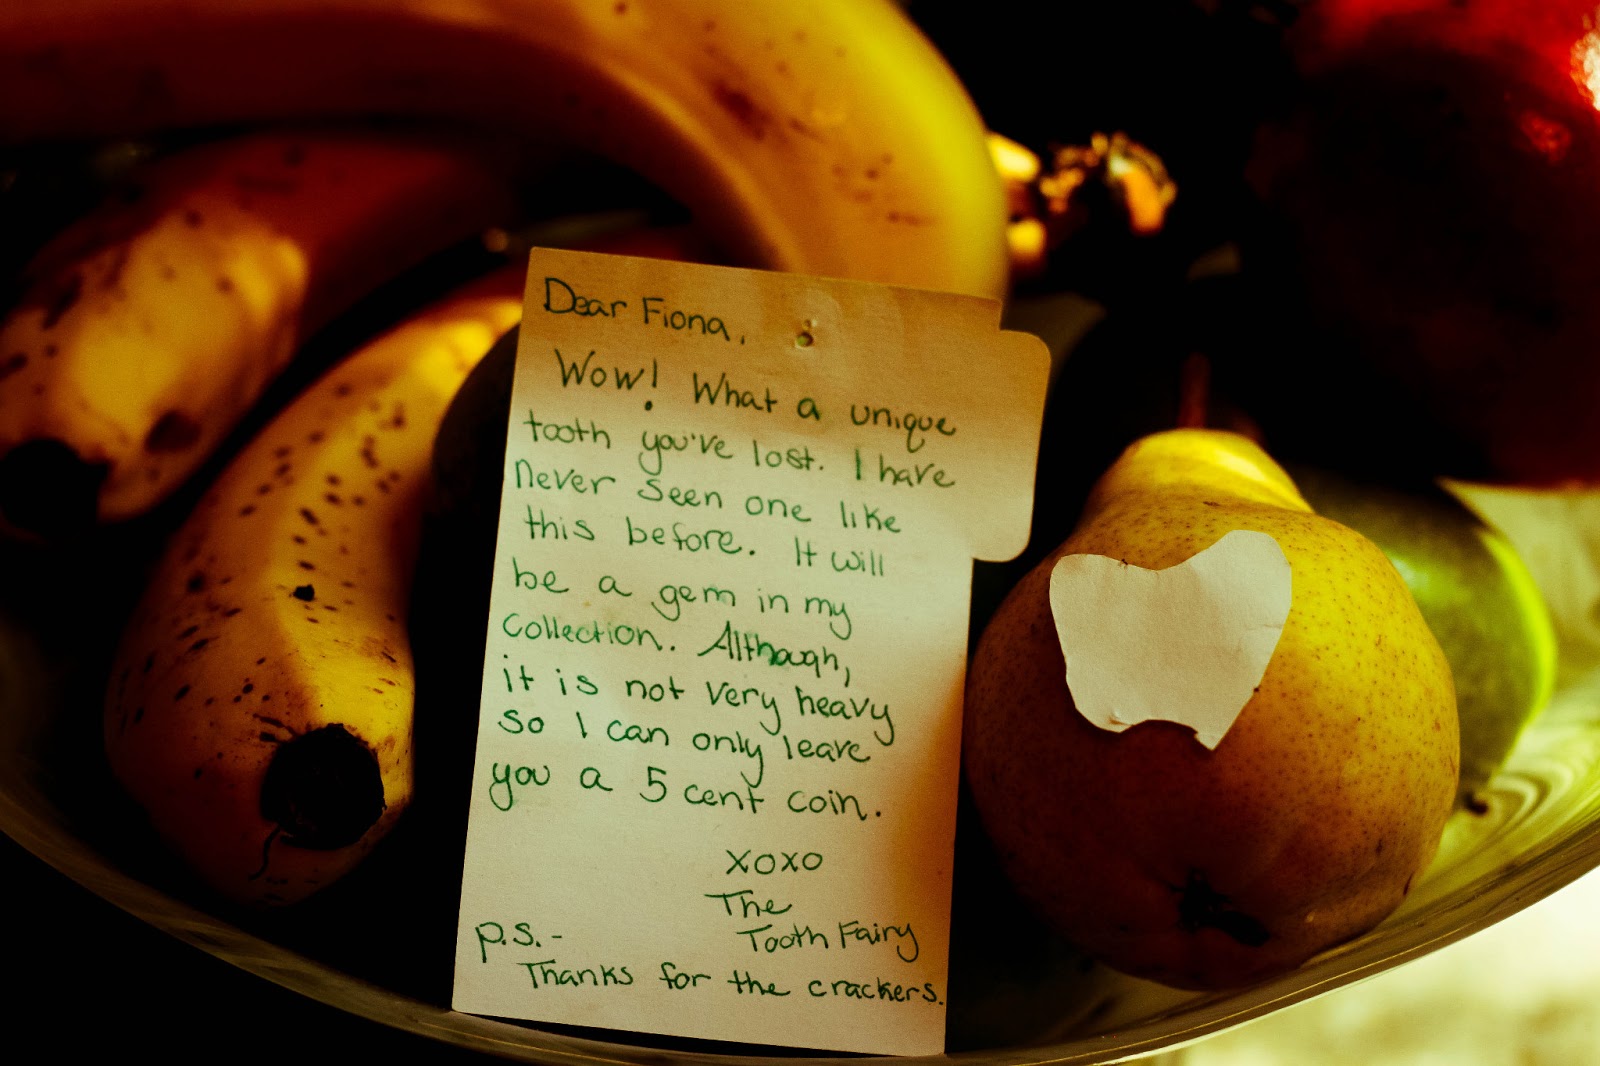 Dear Fiona,
Wow! What a unique
tooth you've lost. I have
never seen one like
this before. It will
be a gem in my
collection. Although,
it is not very heavy
so I can only leave
you a 5 cent coin.
xoxo
The
Tooth Fairy
p.s. -
Thanks for the crackers.